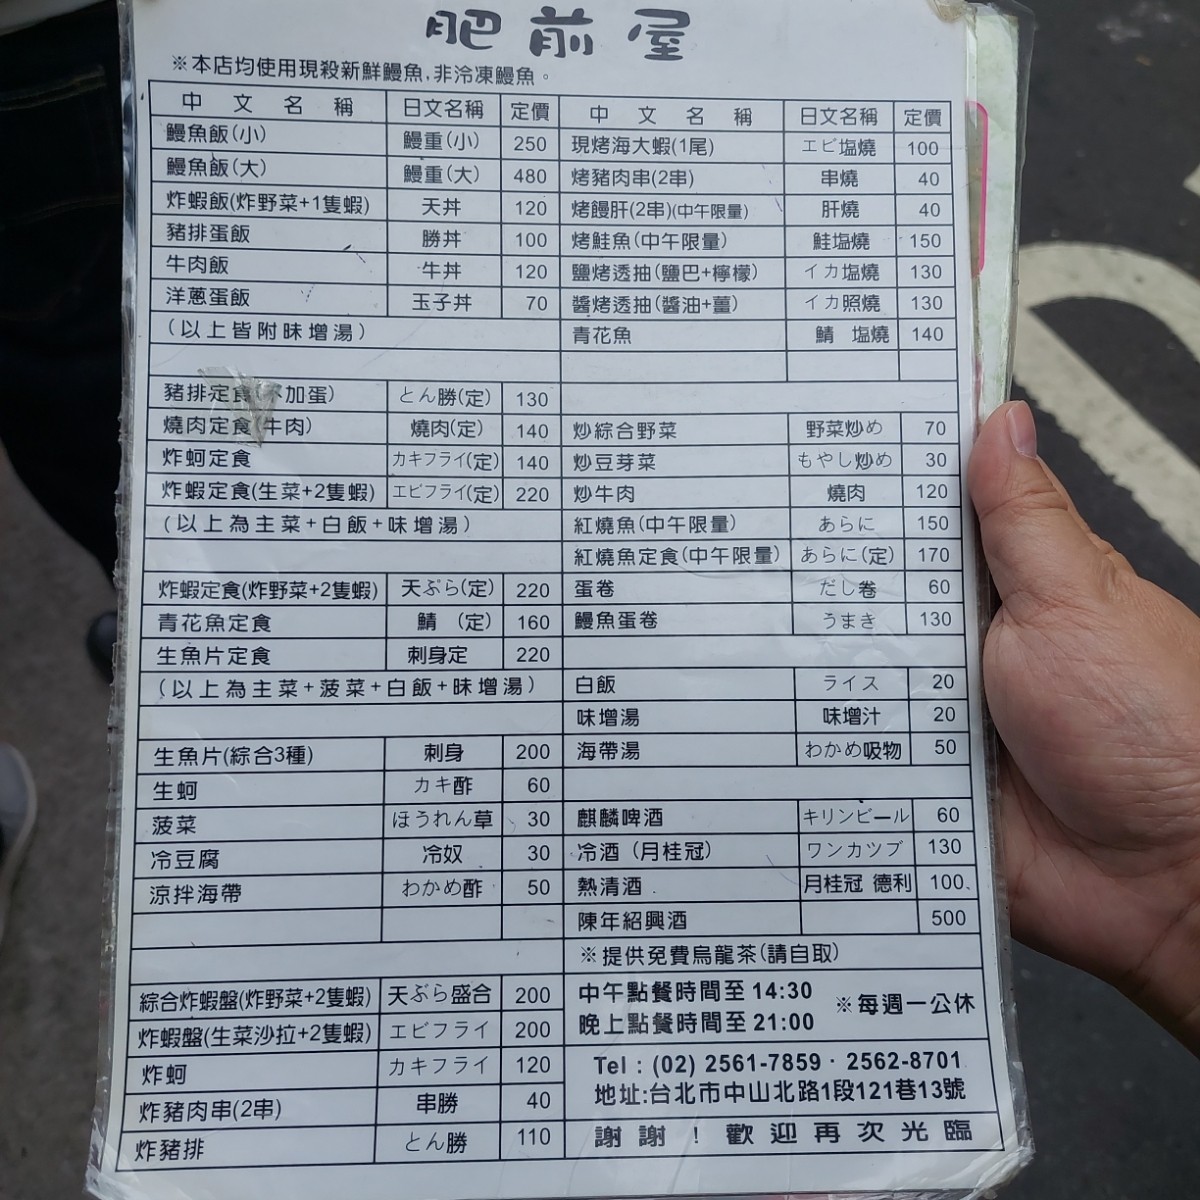 肥前屋
※本店均使用現殺新鮮鰻魚,非冷凍鰻魚。
中文名稱 日文名稱 定價
鰻魚飯(小) 鰻重(小) 250
鰻魚飯(大) 鰻重(大) 480
炸蝦飯(炸野菜+1隻蝦) 天丼 120
豬排蛋飯 勝丼 100
牛肉飯 牛丼 120
洋蔥蛋飯 玉子丼 70
(以上皆附味增湯)
豬排定食(不加蛋) とん勝(定) 130
燒肉定食(牛肉) 燒肉(定) 140
炸蚵定食 カキフライ(定) 140
炸蝦定食(生菜+2隻蝦) エビフライ(定) 220
(以上為主菜+白飯+味增湯)
炸蝦定食(炸野菜+2隻蝦) 天ぷら(定) 220
青花魚定食 鯖 (定) 160
生魚片定食 刺身定 220
(以上為主菜+菠菜+白飯+味增湯)
生魚片(綜合3種) 刺身 200
生蚵 カキ酢 60
菠菜 ほうれん草 30
冷豆腐 冷奴 30
涼拌海帶 わかめ酢 50
綜合炸蝦盤(炸野菜+2隻蝦) 天ぷら盛合 200
炸蝦盤(生菜沙拉+2隻蝦) エビフライ 200
炸蚵 カキフライ 120
炸豬肉串(2串) 串勝 40
炸豬排 とん勝 110
中文名稱 日文名稱 定價
現烤海大蝦(1尾) エビ塩燒 100
烤豬肉串(2串) 串燒 40
烤饅肝(2串)(中午限量) 肝燒 40
烤鮭魚(中午限量) 鮭塩燒 150
鹽烤透抽(鹽巴+檸檬) イカ塩燒 130
醬烤透抽(醬油+薑) イカ照燒 130
青花魚 鯖 塩燒 140
炒綜合野菜 野菜炒め 70
炒豆芽菜 もやし炒め 30
炒牛肉 燒肉 120
紅燒魚(中午限量) あらに 150
紅燒魚定食(中午限量) あらに(定) 170
蛋卷 だし卷 60
鰻魚蛋卷 うまき 130
白飯 ライス 20
味增湯 味增汁 20
海帶湯 わかめ吸物 50
麒麟啤酒 キリンビール 60
冷酒(月桂冠) ワンカツプ 130
熱清酒 月桂冠 德利 100
陳年紹興酒 500
※提供免費烏龍茶(請自取)
中午點餐時間至14:30
晚上點餐時間至21:00
※每週一公休
Tel:(02) 2561-7859·2562-8701
地址:台北市中山北路1段121巷13號
謝謝!歡迎再次光臨